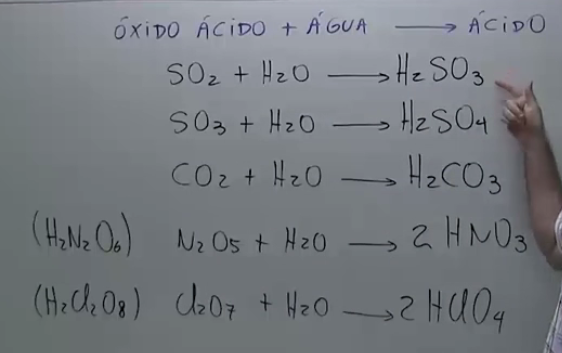 ÓXIDO ÁCIDO + ÁGUA ⟶ ÁCIDO
SO₂ + H₂O ⟶ H₂SO₃
SO₃ + H₂O ⟶ H₂SO₄
CO₂ + H₂O ⟶ H₂CO₃
(H₂N₂O₆) N₂O₅ + H₂O ⟶ 2 HNO₃
(H₂Cl₂O₈) Cl₂O₇ + H₂O ⟶ 2 HClO₄